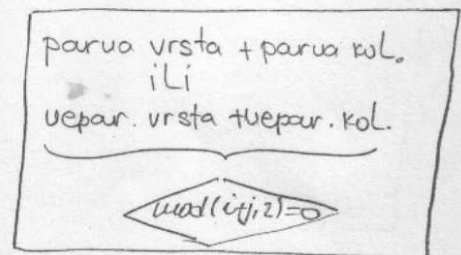 parna vrsta + parna kol.
ili
nepar. vrsta + nepar. kol.
mod(i+j,2)=0